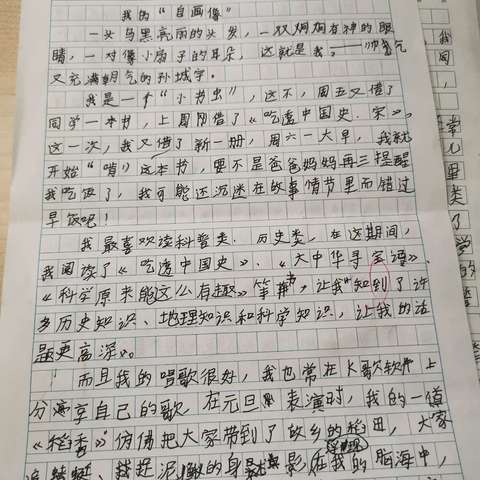 我的“自画像”
一头乌黑亮丽的头发，一双炯炯有神的眼
睛，一对像小扇子的耳朵，这就是我。——帅气
又充满朝气的孙城宇。
我是一个“小书虫”，这不，周五又借了
同学一本书，上周刚借了《吃透中国史·宋》，
这一次，我又借了新一册，周六一大早，我就
开始“啃”这本书，要不是爸爸妈妈再三提醒
我吃饭了，我可能还沉迷在故事情节里而错过
早饭吧！
我最喜欢读科普类、历史类，在这期间，
我阅读了《吃透中国史》、《大中华寻宝记》、
《科学原来能这么有趣》等书，让我知到了许
多历史知识、地理知识和科学知识，让我的话
题更高深。
而且我的唱歌很好，我也常在K歌软件上
分享自己的歌，在元旦表演时，我的一首
《稻香》仿佛把大家带到了故乡的稻田，大家
追蜻蜓、捉泥鳅的身影浮现在我的脑海中，